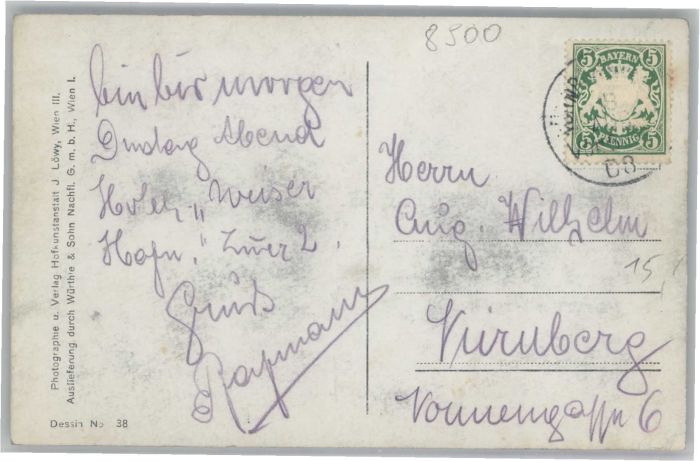 8500
bin bis morgen
Abend
Hotel „Weiser
Hahn." Zimer 2.
Gruß
BAYERN
5 5
5 5
PFENNIG
Herrn
Aug. Wilhelm
15
Nürnberg
Nonnengasse 6
Photographie u. Verlag Hofkunstanstalt J. Löwy, Wien III.
Auslieferung durch Würthle & Sohn Nachfl. G. m. b. H., Wien I.
Dessin No 38